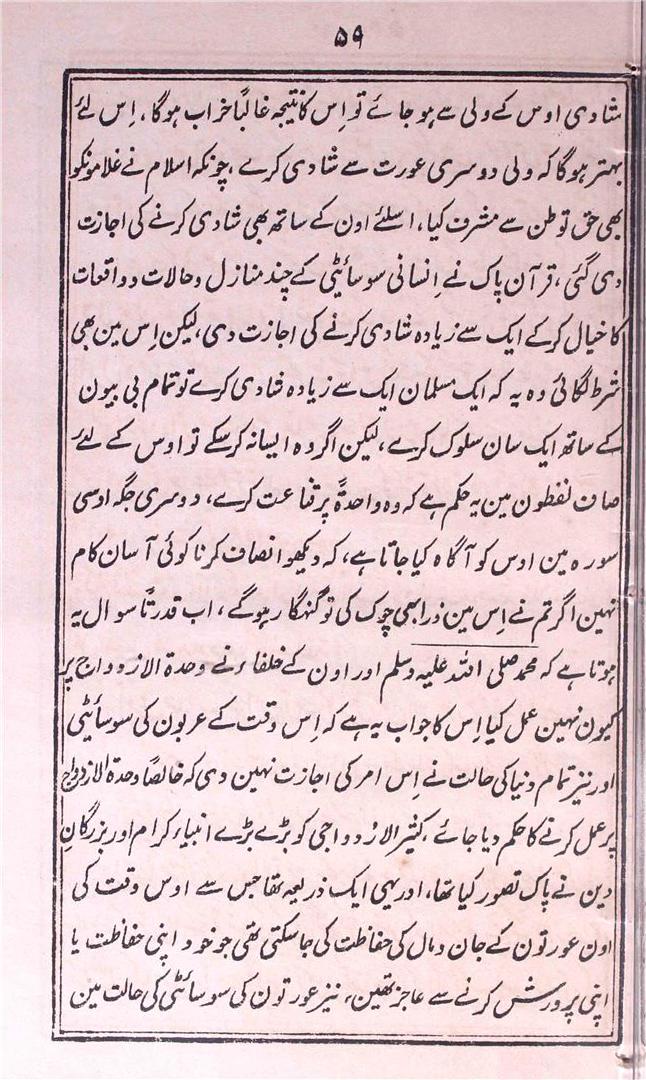 ۵۹
شادی اوس کے ولی سے ہو جائے تو اِس کا نتیجہ غالباً خراب ہوگا، اِس لئے
بہتر ہوگا کہ ولی دوسری عورت سے شادی کرے، چونکہ اسلام نے غلامونکو
بھی حق توطن سے مشرف کیا، اسلئے اون کے ساتھ بھی شادی کرنے کی اجازت
دی گئی، قرآن پاک نے اِنسانی سوسائٹی کے چند منازل و حالات و واقعات
کا خیال کرکے ایک سے زیادہ شادی کرنے کی اجازت دی، لیکن اِس مین بھی
شرط لگائی وہ یہ کہ ایک مسلمان ایک سے زیادہ شادی کرے تو تمام بی بیون
کے ساتھ ایک سان سلوک کرے، لیکن اگر وہ ایسا نہ کرسکے تو اوس کے لئے
صاف لفظون مین یہ حکم ہے کہ وہ واحدةً پر قناعت کرے، دوسری جگہ اوسی
سورہ مین اوس کو آگاہ کیا جاتا ہے، کہ دیکھو انصاف کرنا کوئی آسان کام
نہین اگر تم نے اِس مین ذرا بھی چوک کی تو گنہگار ہوگے، اب قدرتاً سوال یہ
ہوتا ہے کہ محمد صلی اللہ علیہ وسلم اور اون کے خلفاء نے وحدة الازدواج پر
کیون نہین عمل کیا اِس کا جواب یہ ہے کہ اِس وقت کے عربون کی سوسائیٹی
اور نیز تمام دنیا کی حالت نے اِس امر کی اجازت نہین دی کہ خالصاً وحدة الازدواج
پر عمل کرنے کا حکم دیا جائے، کثیر الازدواجی کو بڑے بڑے انبیاء کرام اور بزرگانِ
دین نے پاک تصور کیا تھا، اور یہی ایک ذریعہ تھا جس سے اوس وقت کی
اون عورتون کے جان و مال کی حفاظت کی جاسکتی تھی جو خود اپنی حفاظت یا
اپنی پرورش کرنے سے عاجز تھین، نیز عورتون کی سوسائٹی کی حالت مین